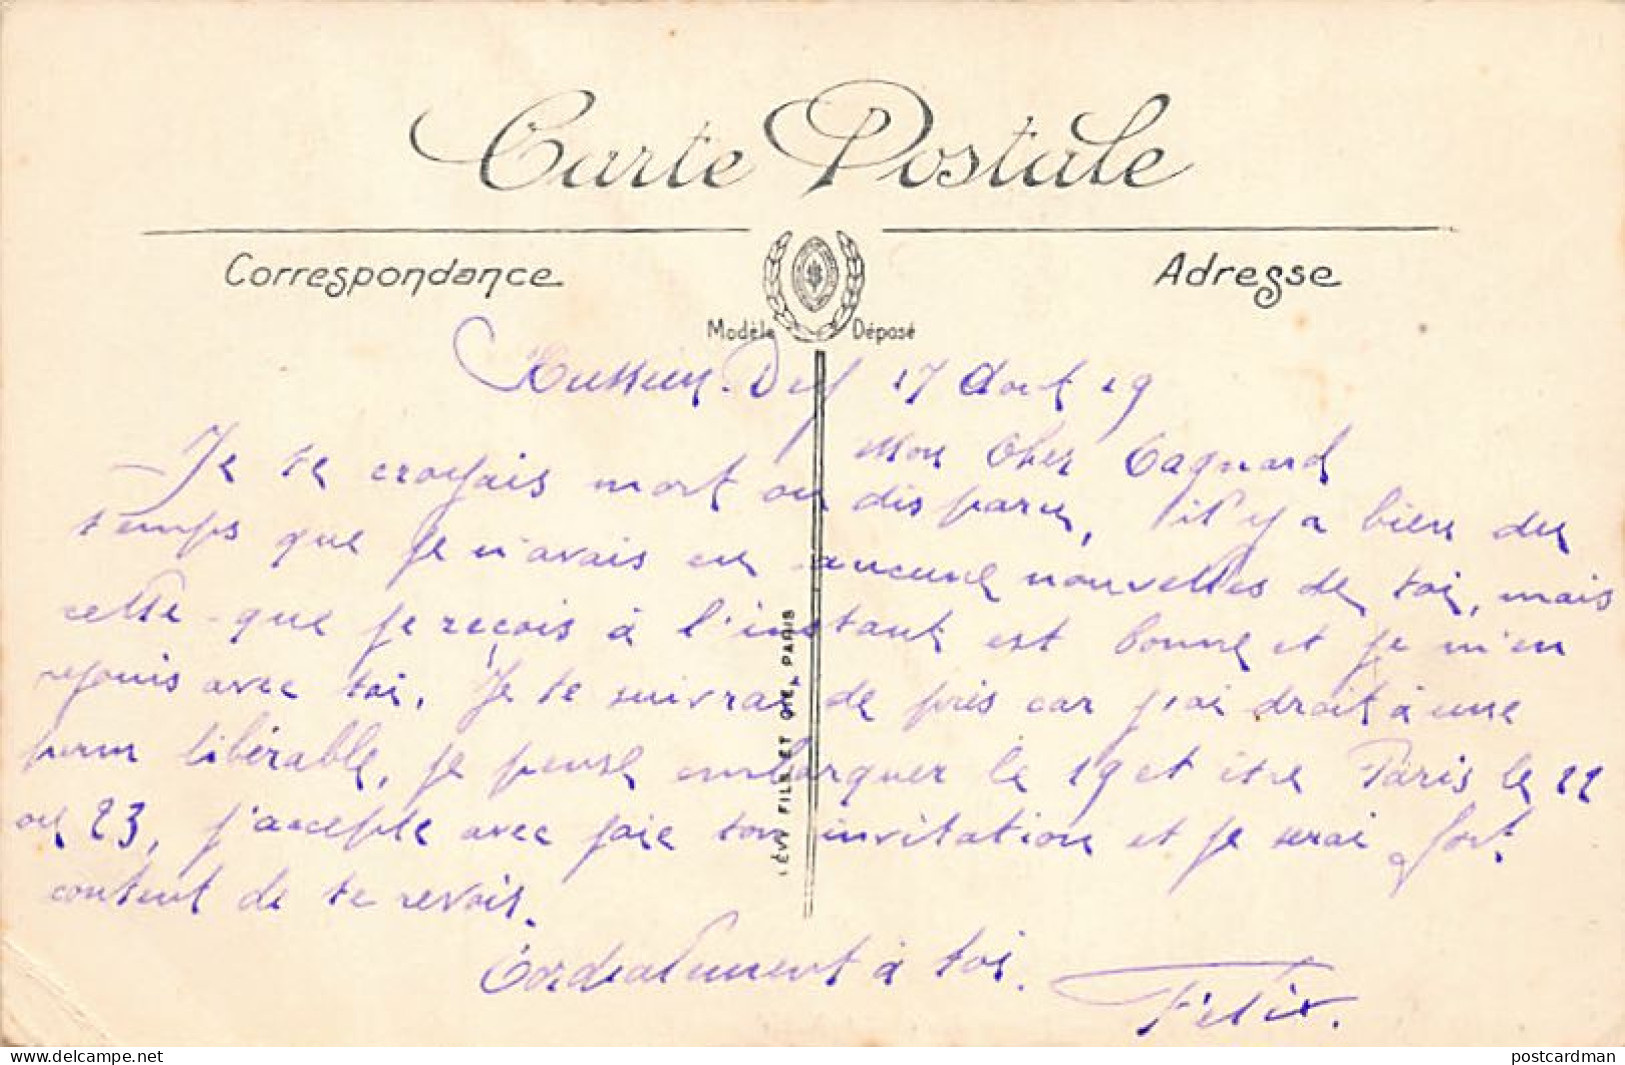 Carte Postale
Correspondance
Adresse
Modèle Déposé
Hussein-Dey 17 Aout 19
Mon Cher Cagnard
Je te croyais mort ou disparu, il y a bien du
temps que je n'avais eu aucune nouvelles de toi, mais
cette que je reçois à l'instant est bonne et je m'en
rejouis avec toi. Je te suivrai de près car j'ai droit à une
perm libérable, je pense embarquer le 19 et être Paris le 22
ou 23, j'accepte avec joie ton invitation et je serai fort
content de te revoir.
Cordialement à toi.
Félix.
LÉVY FILS ET CIE, PARIS
https://www.delcampe.net
postcardman